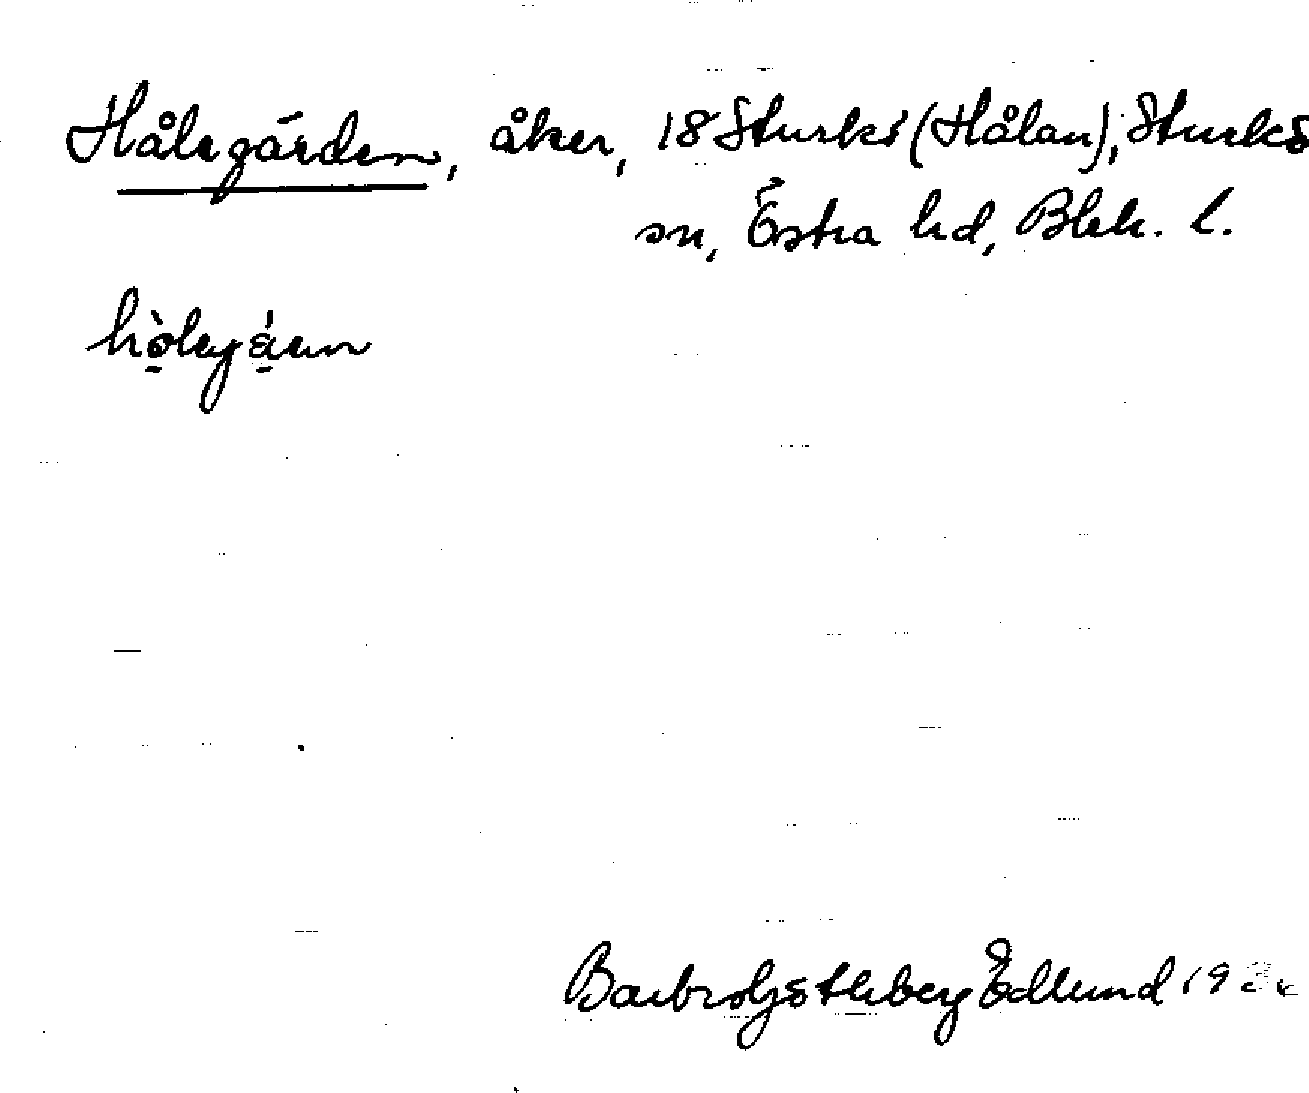 Hålegärden, åker, 18 Sturkö (Hålan), Sturkö
sn, Östra hd, Blek. l.
Barbro Götheberg Edlund 19